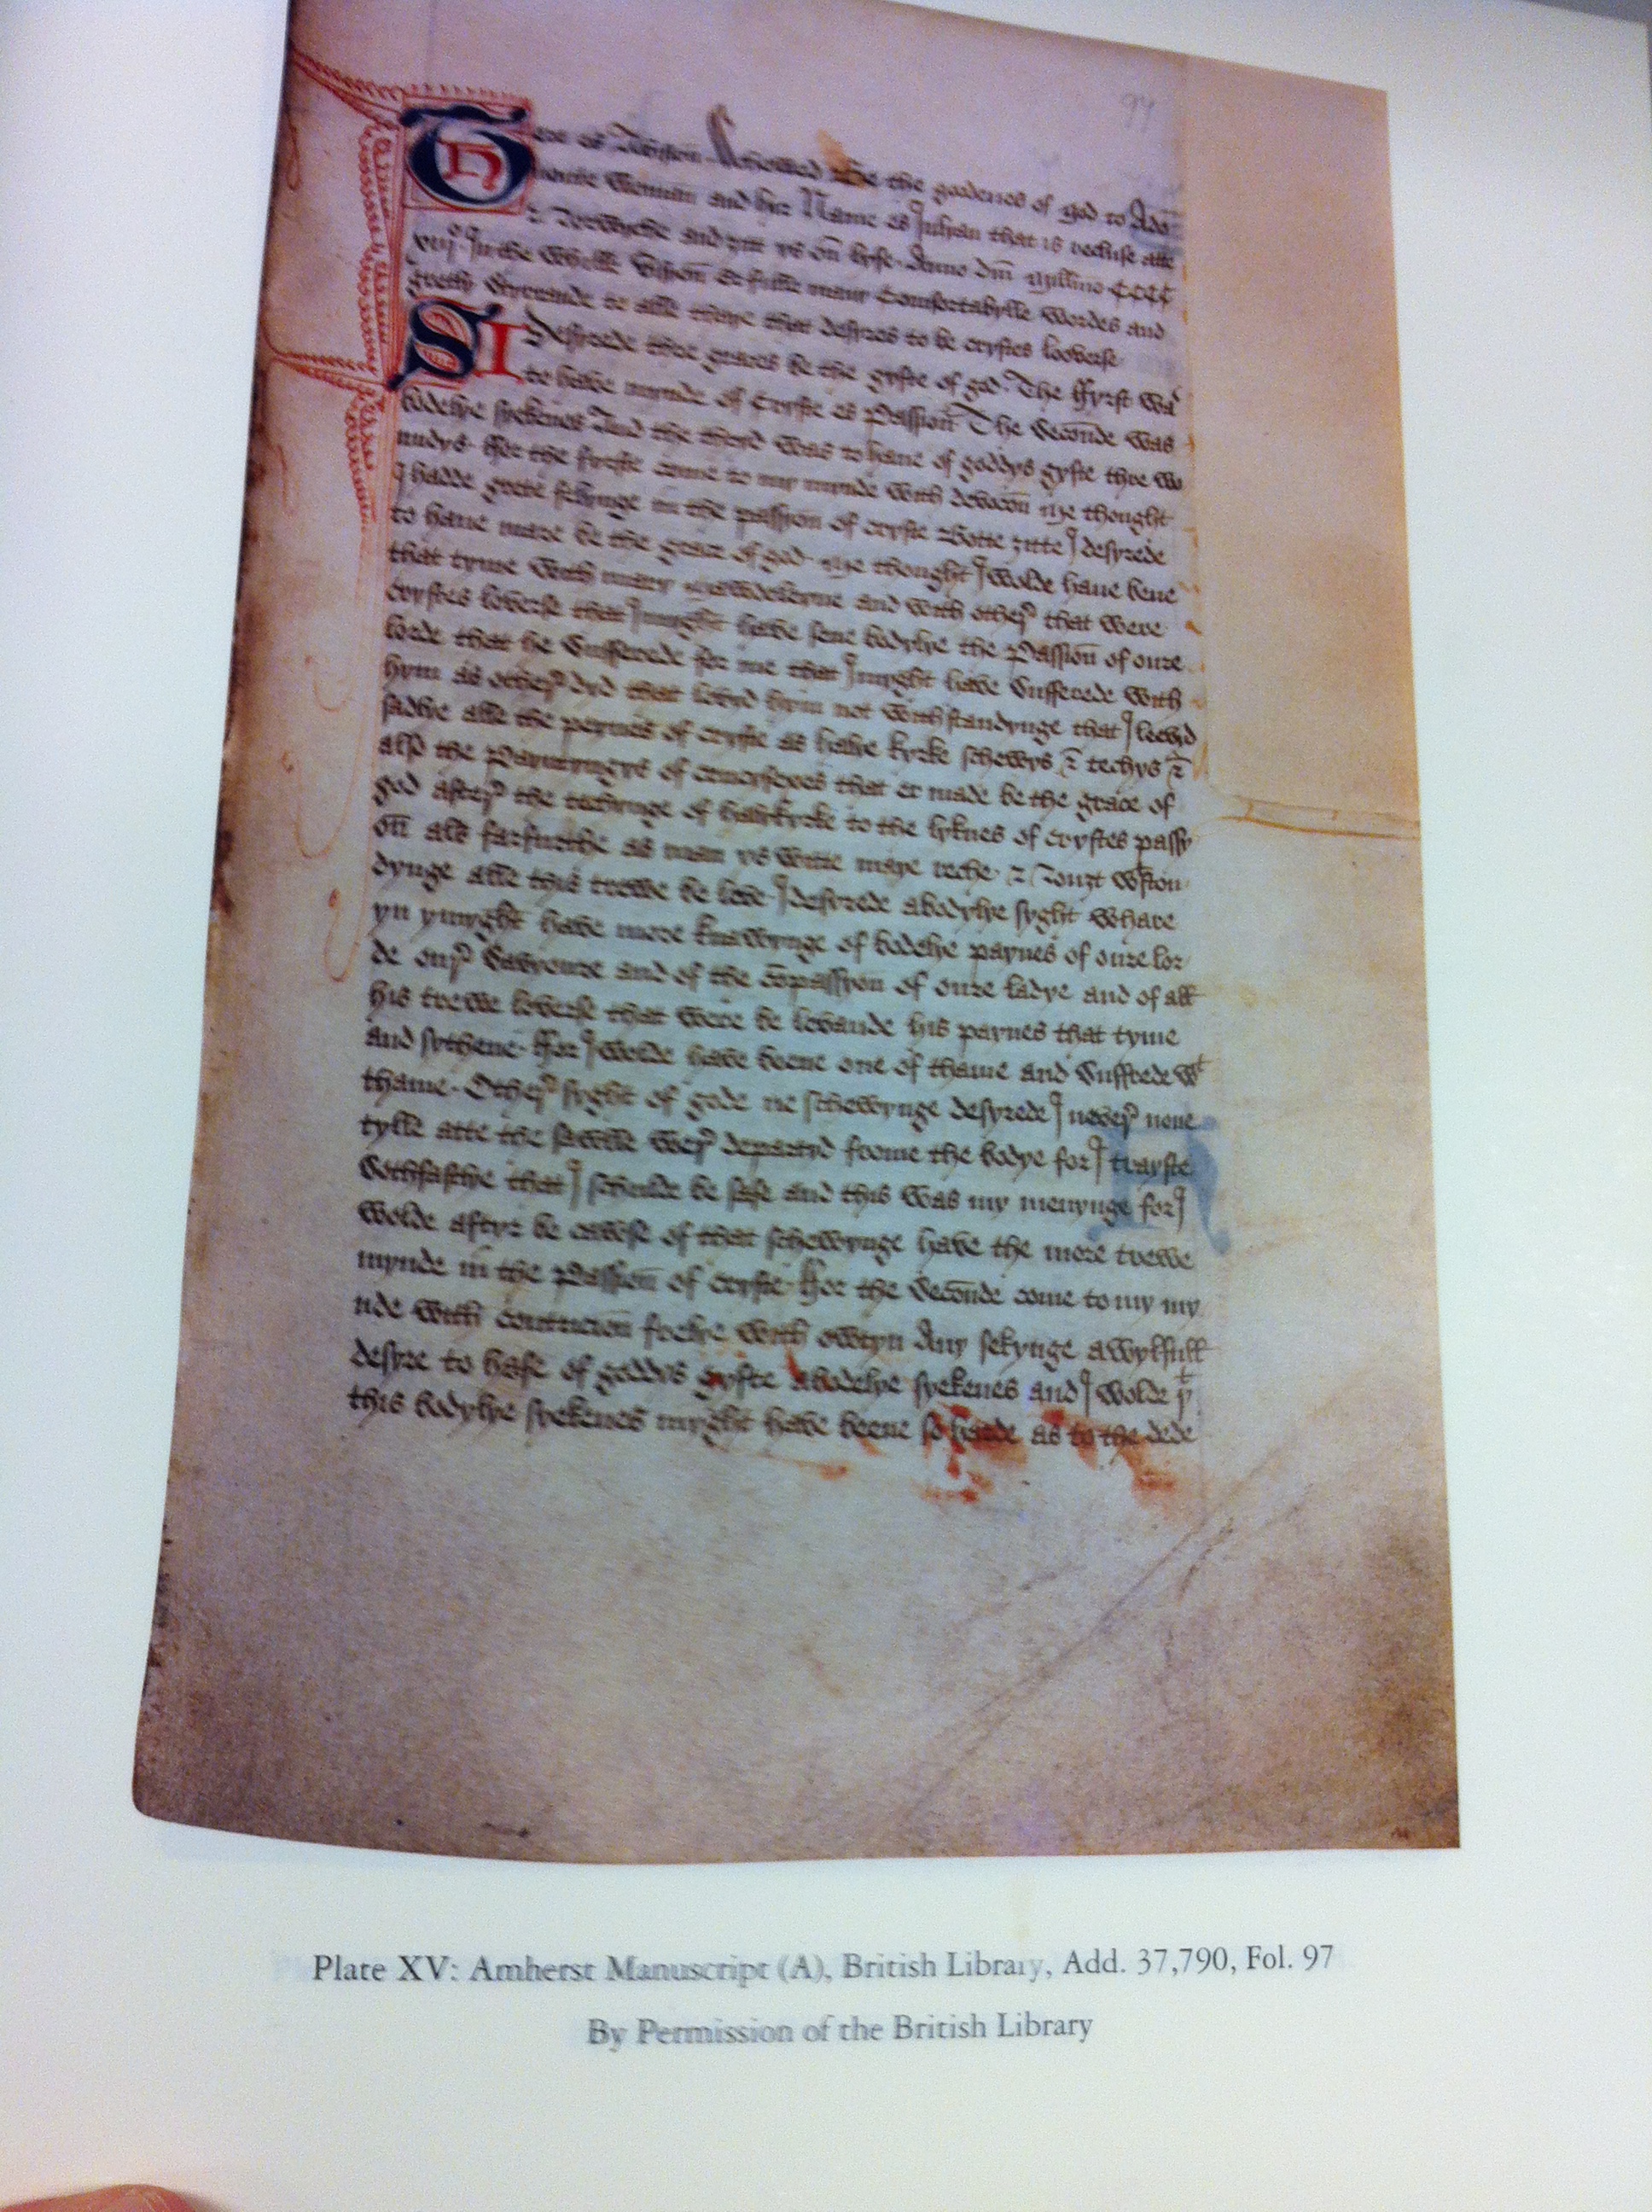 97
There es Avision Schewed Be the goodenes of god to Ade
uoute Woman and hir Name es Julyan that is recluse atte
Norwyche and ȝitt ys oñ lyfe. Anno dm̄ millmo CCCC
xiijo. In the Whilke Visyoñ Er fulle many Comfortabylle Wordes and
gretly Styrrande to alle thaye that desyres to be crystes looverse.
I Desyrede thre graces be the gyfte of god. The ffyrst Was
to have mynde of Cryste es Passioñ. The Secoñde Was
bodelye syekenes And the thryd Was to haue of goddys gyfte thre Wo
undys. ffor the fyrste come to my mynde With devocoñ me thought
I hadde grete felynge in the passyoñ of cryste Botte ȝitte I desyrede
to haue mare be the grace of god. me thought I Wolde haue bene
that tyme With mary mawdeleyne and With otheɼ that Were
crystes loverse that I myght have sene bodylye the Passioñ of oure
lorde that he Sufferede for me that I myght have Sufferede With
hym as otheɼ dyd that lovyd hym not Withstandynge that I leevyd
sadlye alle the peynes of cryste as halye kyrke schewys & techys &
also the Payntyngys of crucyfexes that er made be the grace of
god afteɼ the techynge of haly kyrke to the lyknes of crystes passy
oñ als farfurthe as man ys Witte maye reche. Nouȝt Wtston
dynge alle this trewe be leve I desyrede abodylye syght Whare
yn ymyght have more knawynge of bodelye paynes of oure lor
de ouɼ Savyoure and of the cōpassyon of oure ladye and of all
his trewe loverse that Were be levande his paynes that tyme
and sythene. ffor I Wolde have beene one of thame and Suffrede Wt
thame. Otheɼ syght of gode ne schewynge desyrede I neveɼ none
tylle atte the sawlle Weɼ departyd frome the bodye for I trayste
Sothfastlye that I schulde be safe and this Was my menynge for I
Wolde aftyr be cawse of that schewynge have the more trewe
mynde in the Passioñ of cryste. ffor the Secoñde come to my my
nde With contricioñ frelye With owtyn Any sekynge a wylfull
desyre to hafe of goddys gyfte abodelye syekenes and I Wolde þt
this bodylye syekenes myght have beene so harde as to the dede
Plate XV: Amherst Manuscript (A), British Library, Add. 37,790, Fol. 97
By Permission of the British Library